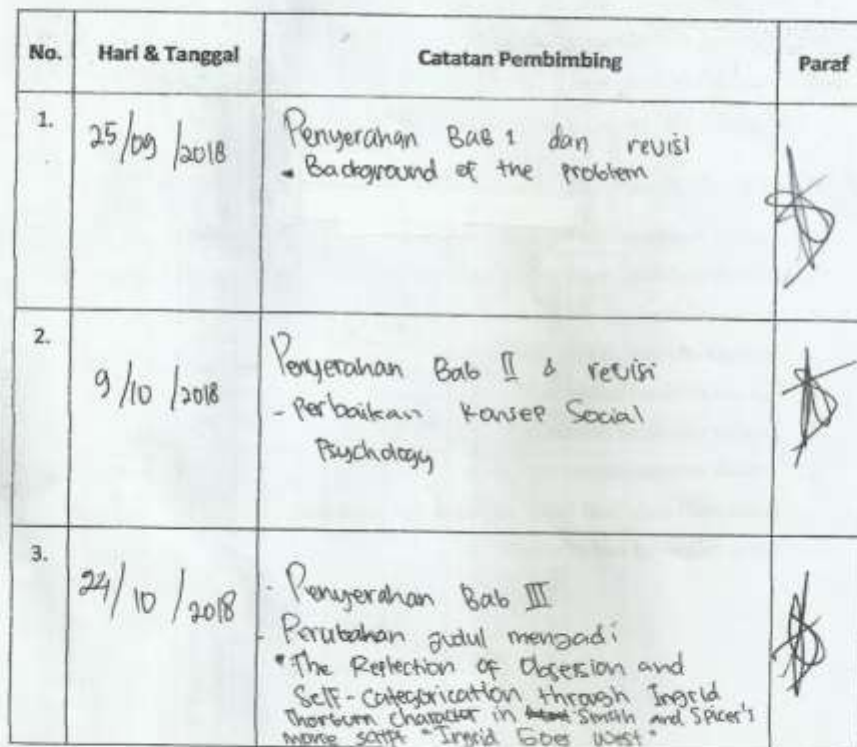 No. Hari & Tanggal Catatan Pembimbing Paraf
1. 25/09/2018 Penyerahan Bab 1 dan revisi
- Background of the problem
2. 9/10/2018 Penyerahan Bab II & revisi
- Perbaikan Konsep Social
Psychology
3. 24/10/2018 - Penyerahan Bab III
- Perubahan judul menjadi
"The Reflection of Obsession and
Self-Categorication through Ingrid
Thorburn Character in Smith and Spicer's
movie script "Ingrid Goes West"